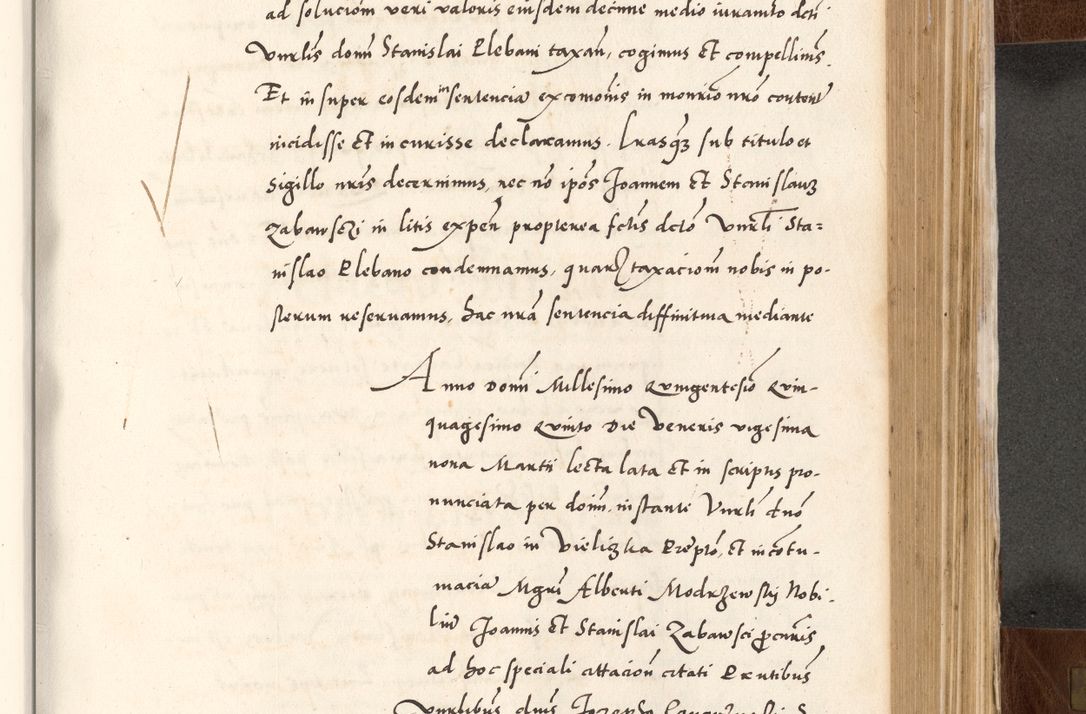 ad soluciom veri valoris eiusdem decime medio iuramto dcti
Vnrlis domi Stanislai Plebani taxan, cogimus Et compellims.
Et in super eosdem in sentencia excomonis in monrio nro content
incidisse Et incurisse declaramus. Lrasqz sub titulo et
sigillo nris decernimus, nec no ipos Joannem Et Stanislaum
Zabawsczi in litis expen propterea fctis dcto Vnrli Sta=
nislao Plebano condemnamus, quarum taxaciom nobis in po-
sterum reseruamus, hac nra sentencia diffinitiua mediante
Anno Domi Millesimo Quingentesio Quin-
quagesimo Quinto Die Veneris vigesima
nona Martii lecta lata Et in scriptis pro-
nunciata per doim, instante Vnrli dno
Stanislao in Vieliczka Preptō, Et in cotu-
macia Mgri Alberti Modrzewskij Nobi-
liu Joannis Et Stanislai Zabawsci pcuris
ad hoc speciali cittacion citati Prntibus
Vnrlibus dnis